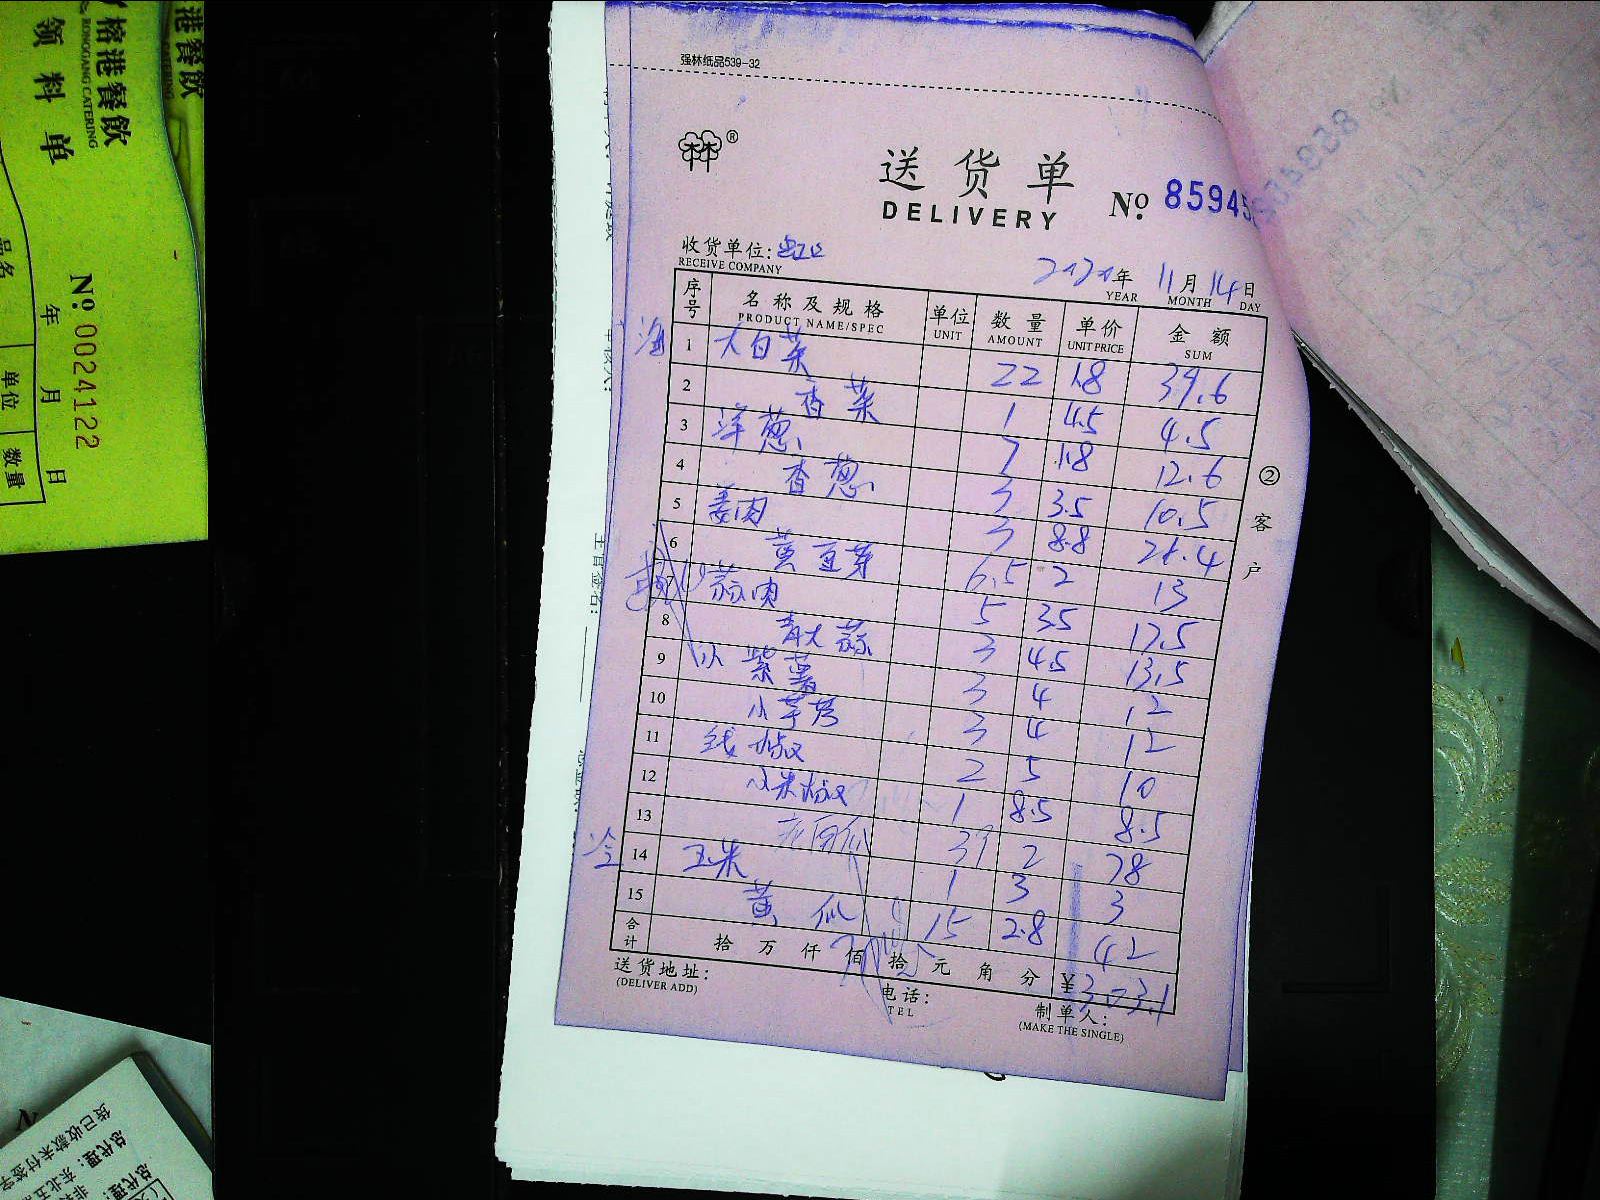 强林纸品539-32
®
送货单
DELIVERY
№ 85945
收货单位:
RECEIVE COMPANY
2020年 11月 14日
YEAR MONTH DAY
序号 名称及规格 单位 数量 单价 金额
PRODUCT NAME/SPEC UNIT AMOUNT UNIT PRICE SUM
海 1 大白菜 22 1.8 39.6
2 香菜 1 4.5 4.5
3 洋葱 7 1.8 12.6
4 香葱 3 3.5 10.5
5 姜肉 3 8.8 26.4
6 黄豆芽 6.5 2 13
蒜肉 5 3.5 17.5
8 青大蒜 3 4.5 13.5
9 小紫薯 3 4 12
10 小芋艿 3 4 12
11 线椒 2 5 10
12 小米椒 1 8.5 8.5
13 老南瓜 39 2 78
冷 14 玉米 1 3 3
15 黄瓜 15 2.8 42
合计 拾 万 仟 佰 拾 元 角 分 ¥303.1
送货地址:
(DELIVER ADD)
电话:
TEL
制单人:
(MAKE THE SINGLE)
②客户
港餐饮
榕港餐饮
RONGGANG CATERING
领料单
№ 0024122
年 月 日
品名 单位 数量
主管签名:
货已收款未付签字
总代理:东北五
总代理: